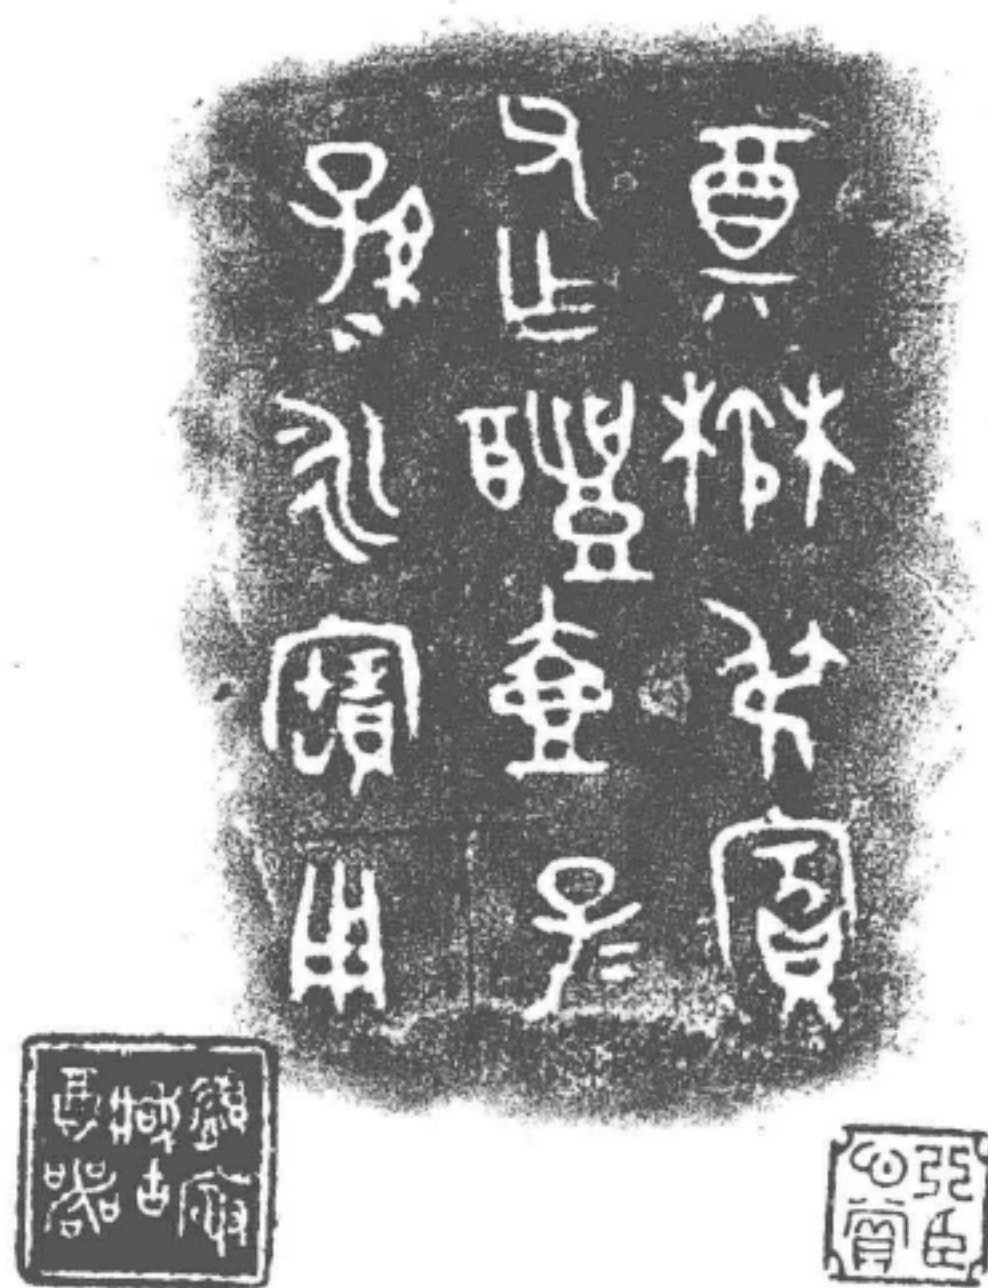 奠楙叔賓
父乍醴壺子=
孫=永寶用